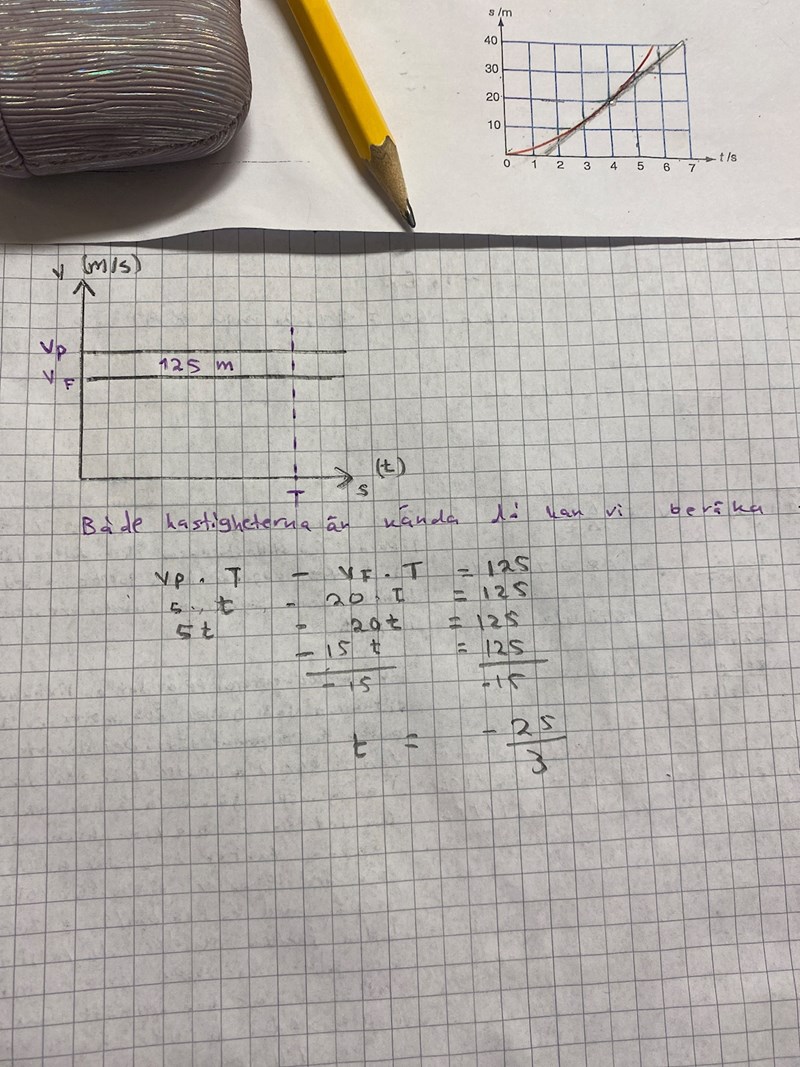 s/m
40
30
20
10
0 1 2 3 4 5 6 7 t/s
v (m/s)
VP
125 m
VF
(t)
T s
Både hastigheterna är kända då kan vi beräka
VP . T - VF . T = 125
5 . t - 20 . T = 125
5t - 20t = 125
-15 t = 125
-15 -15
t = -25
3